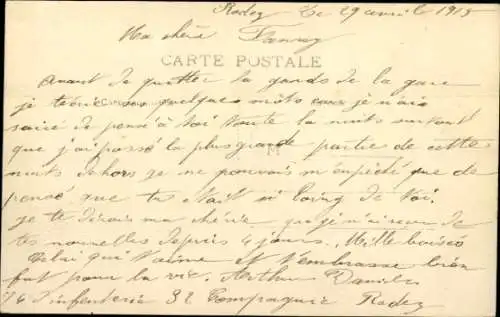 Rodez Le 29 avril 1915
Ma chère Fanny
CARTE POSTALE
avant de quetter la gards de la gare
je quelques môts car je n'ais
de pensé à toi toute la nuits surtout
que j'ai passé la plus grande partie de cette
M
nuits dehors je ne pouvais m'enpéché que de
pensé que tu était si loing de toi.
je te dirais ma chérie que je n'ai recu de
tes nouvelles depuis 4 jours. Mille baisés
Celui qui t'aime et t'embrasse bien
fort pour la vie. Arthur
d'infenterie 32 Compagnie Rodez